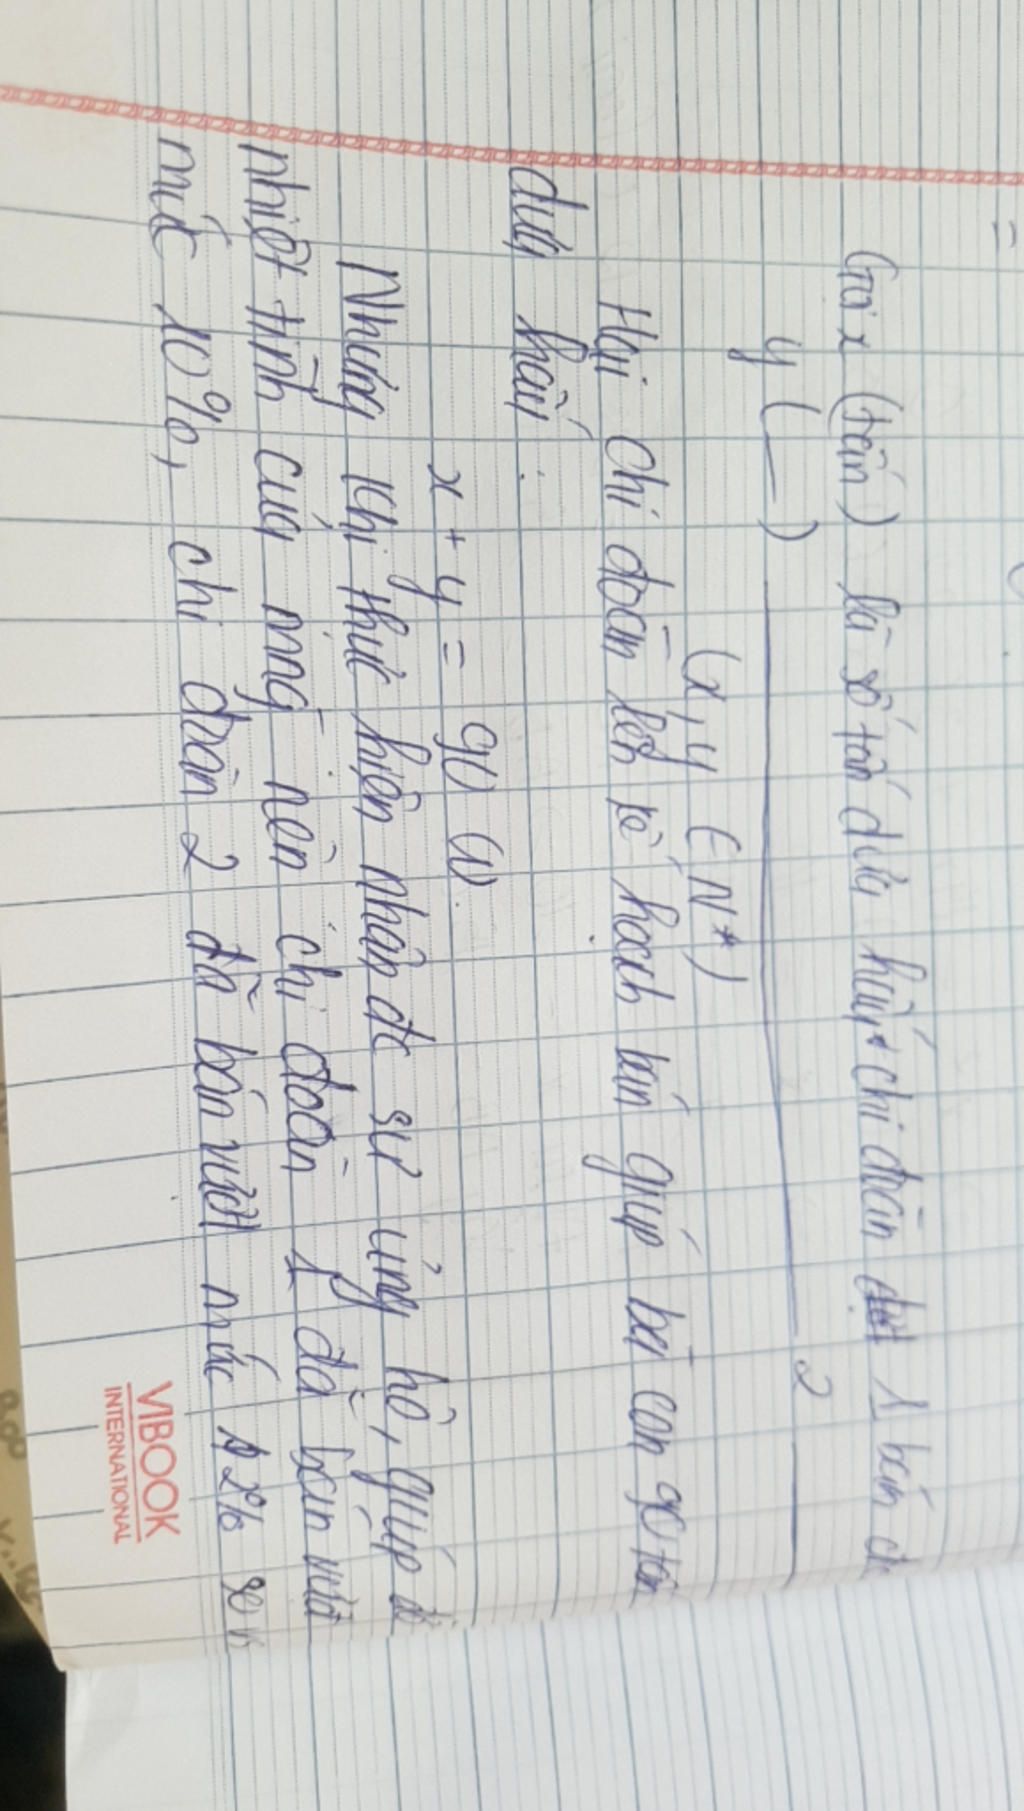 =
Gọi x (tấn) là số tấn dưa hấu chi đoàn 1 bán đc
y (—) ——— 2 ———
(x, y ∈ N*)
Hai chi đoàn lên kế hoạch bán giúp bà con 90 tấn
dưa hấu :
x + y = 90 (1)
Nhưng khi thực hiện nhận đc sự ủng hộ, giúp đỡ
nhiệt tình của mng nên chi đoàn 1 đã bán vượt
mức 10%, chi đoàn 2 đã bán vượt mức 12% so
VIBOOK
INTERNATIONAL